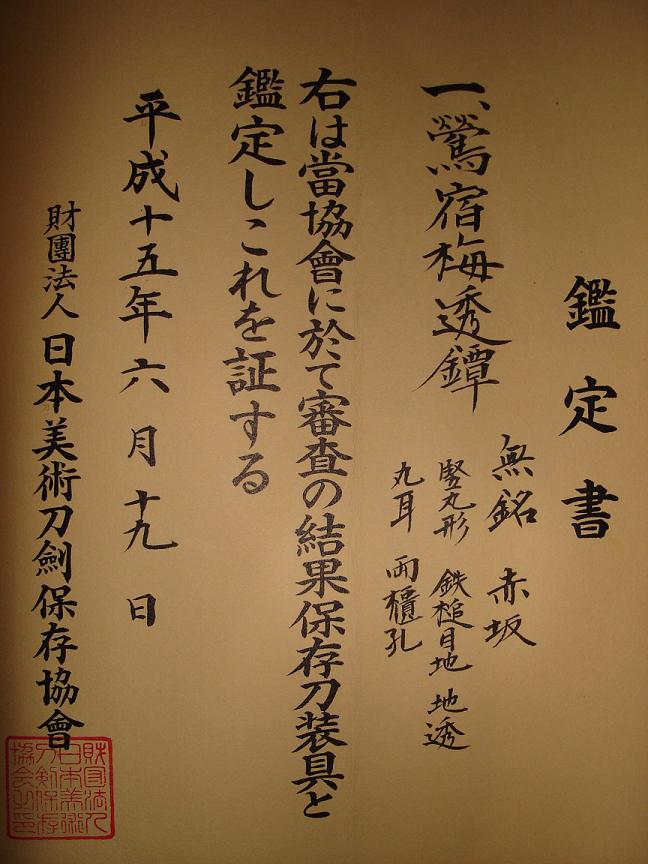 鑑定書
一、鶯宿梅透鐔
無銘 赤坂
竪丸形 鉄槌目地 地透
丸耳 両櫃孔
右は當協會に於て審査の結果保存刀装具と
鑑定しこれを証する
平成十五年六月十九日
財團法人 日本美術刀劍保存協會
財団法人
日本美術
刀剣保存
協会之印